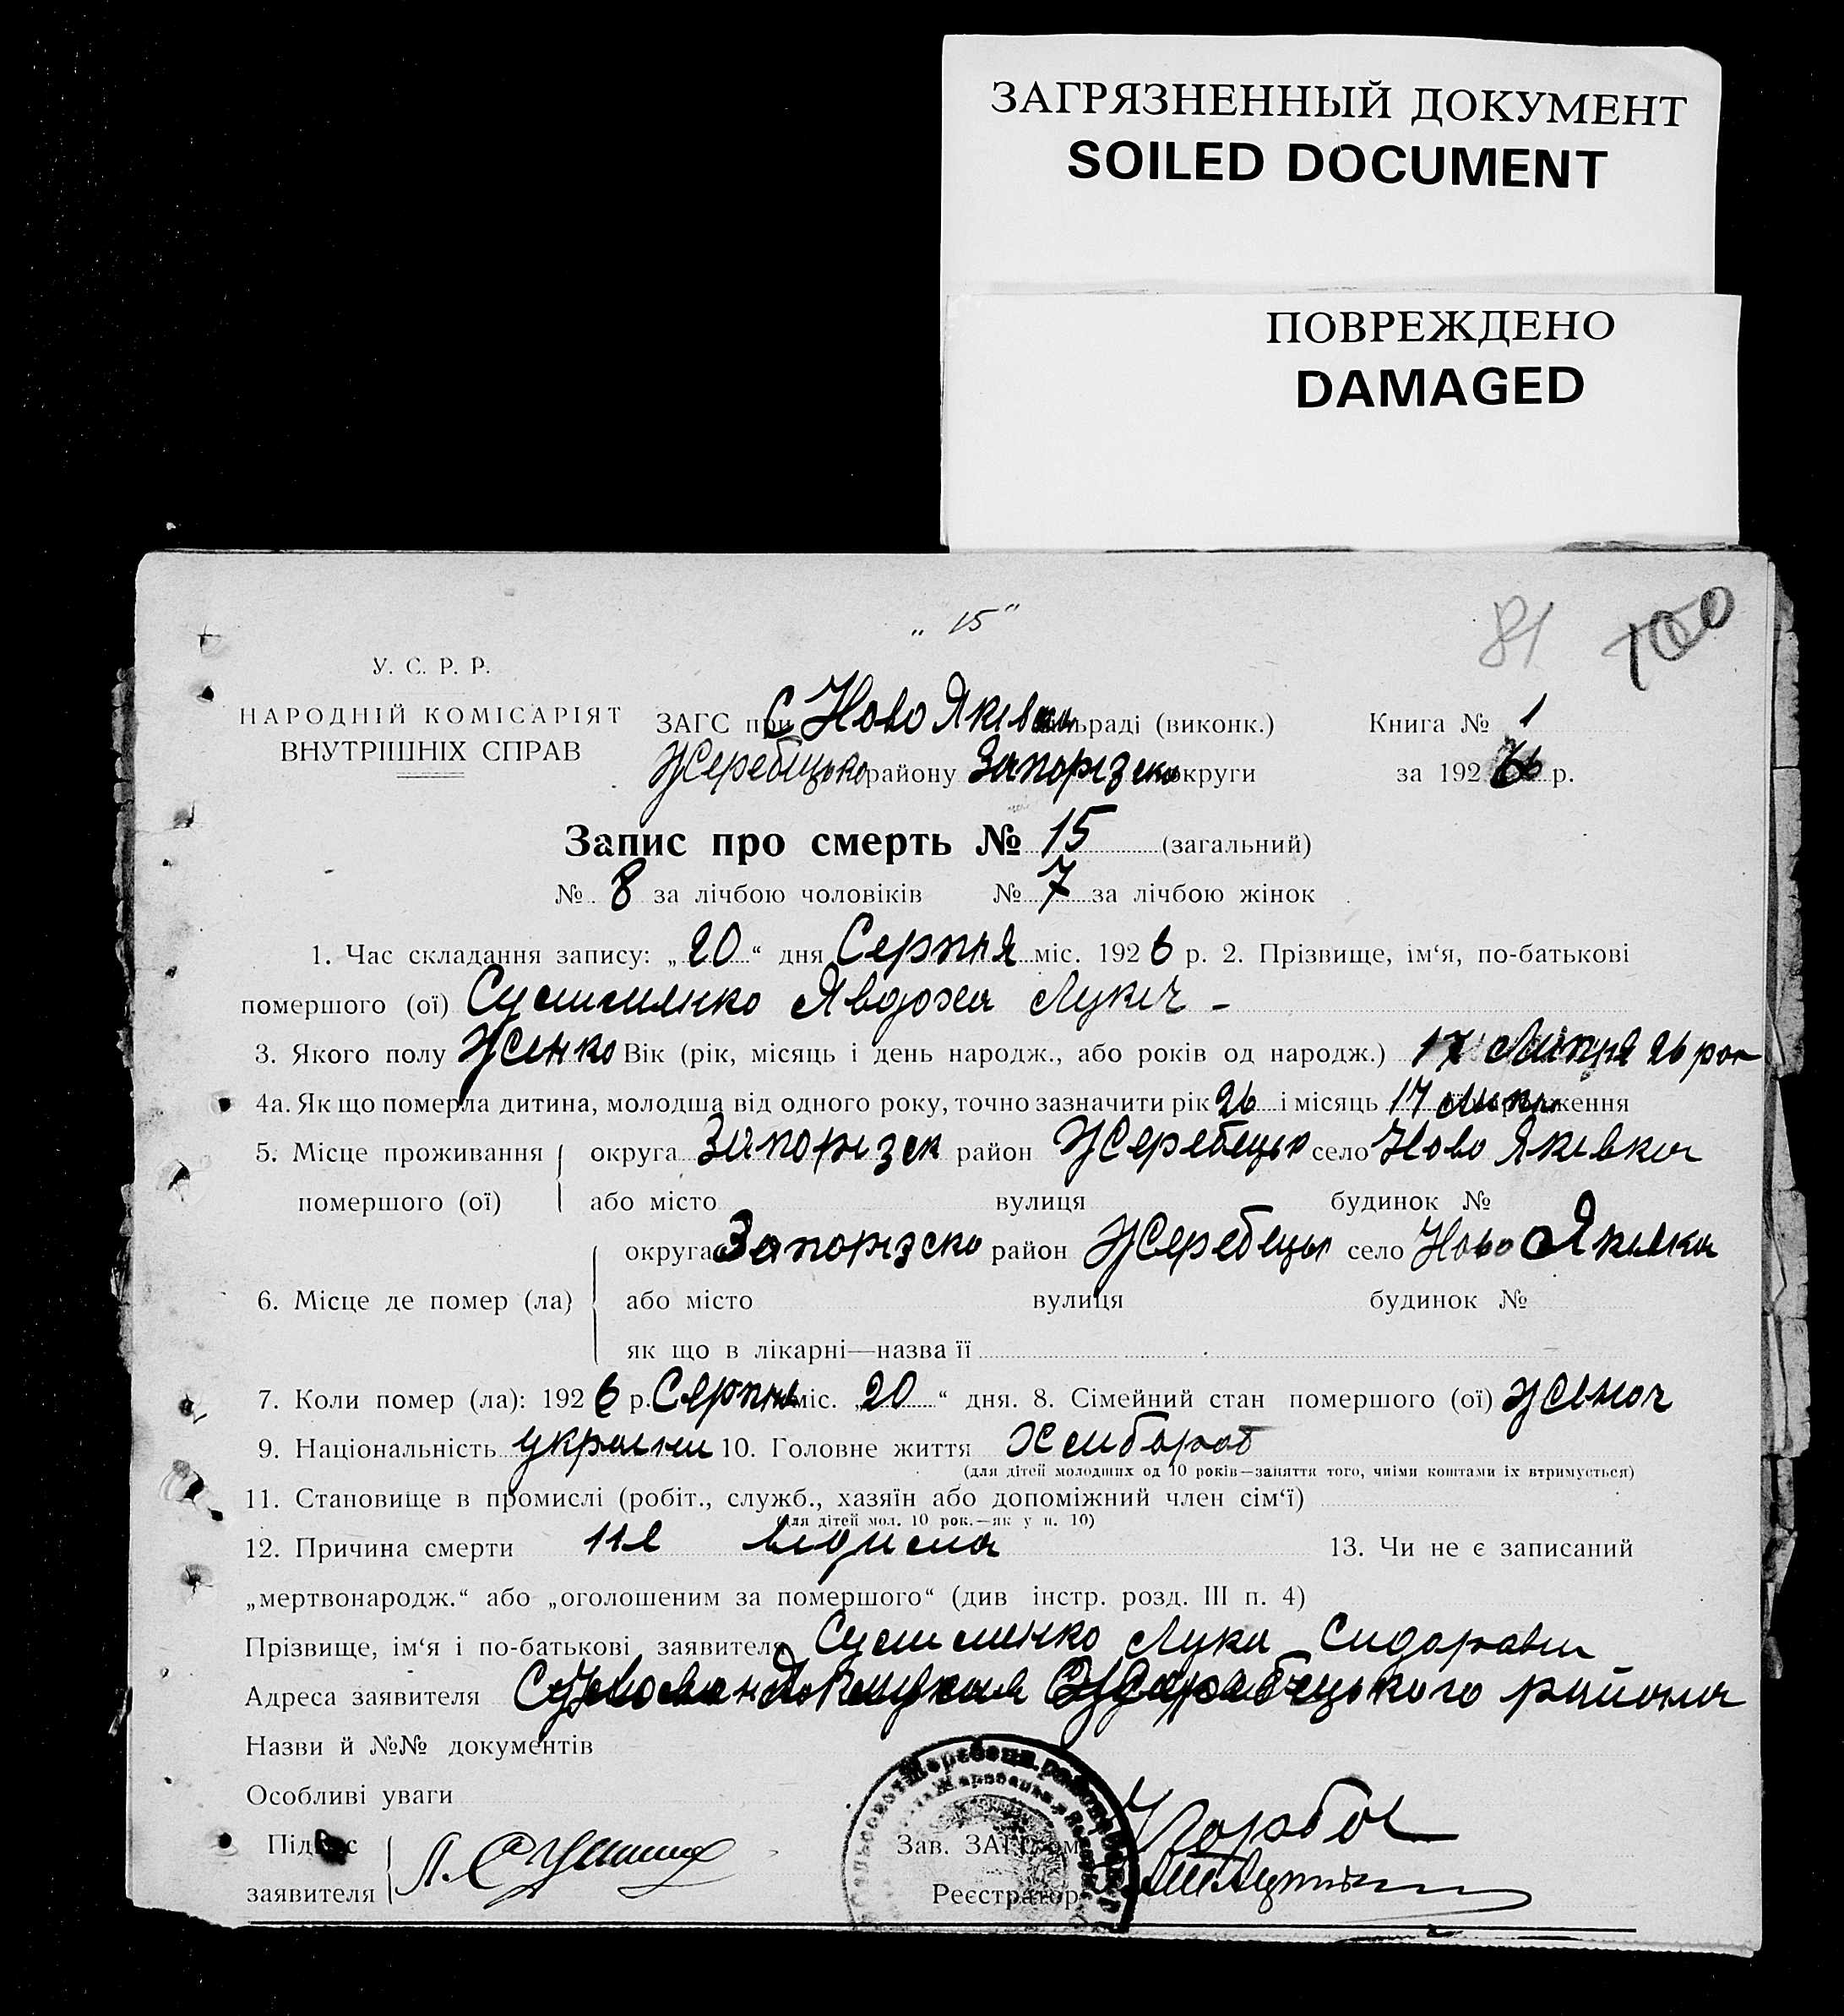 ЗАГРЯЗНЕННЫЙ ДОКУМЕНТ
SOILED DOCUMENT
ПОВРЕЖДЕНО
DAMAGED
„ 15 “
81 100
У. С. Р. Р.
НАРОДНІЙ КОМІСАРІЯТ
ВНУТРІШНІХ СПРАВ
ЗАГС при С Ново Яківка раді (виконк.)
Книга № 1
Жеребицько району Запорізско округи
за 1926 р.
Запис про смерть № 15 (загальний)
№ 8 за лічбою чоловіків № 7 за лічбою жінок
1. Час складання запису: „20“ дня Серпня міс. 1926 р. 2. Прізвище, ім‘я, по-батькові
помершого (ої) Явдоха Лукич -
3. Якого полу Женко Вік (рік, місяць і день народж., або років од народж.) 17 Липня 26 рок
4а. Як що померла дитина, молодша від одного року, точно зазначити рік 26 і місяць 17 липня народження
5. Місце проживання округа Запорізск район Жеребецько село Ново Яківка
помершого (ої) або місто вулиця будинок №
округа Запорізско район Жеребецько село Ново Яківка
6. Місце де помер (ла) або місто вулиця будинок №
як що в лікарні—назва її
7. Коли помер (ла): 1926 р. Серпня міс. „20“ дня. 8. Сімейний стан помершого (ої)
9. Національність україни 10. Головне життя Хлібороб
(для дітей молодших од 10 років—заняття того, чиїми коштами їх втримується)
11. Становище в промислі (робіт., служб., хазяїн або допоміжний член сім‘ї)
(для дітей мол. 10 рок.—як у п. 10)
12. Причина смерти не відома 13. Чи не є записаний
„мертвонародж.“ або „оголошеним за помершого“ (див інстр. розд. III п. 4)
Прізвище, ім‘я і по-батькові заявителя Лука Сидорович
Адреса заявителя Жеребецького района
Назви й №№ документів
Особливі уваги
Підпис
заявителя
Зав. ЗАГС‘ом
Реєстратор